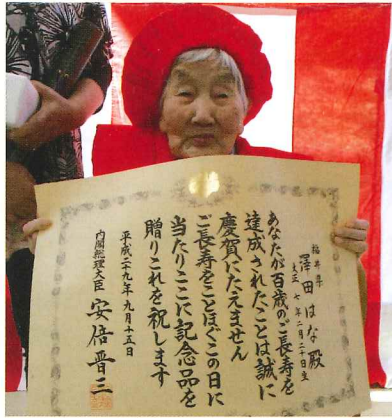 福井県
澤田はな殿
大正七年二月二十日生
あなたが百歳のご長寿を
達成されたことは誠に
慶賀にたえません
ご長寿をことほぐこの日に
当たりここに記念品を
贈りこれを祝します
平成二十九年九月十五日
内閣総理大臣 安倍晋三